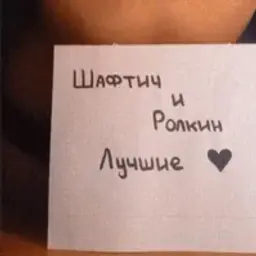 Шафтич
и
Ролкин
Лучшие ♥